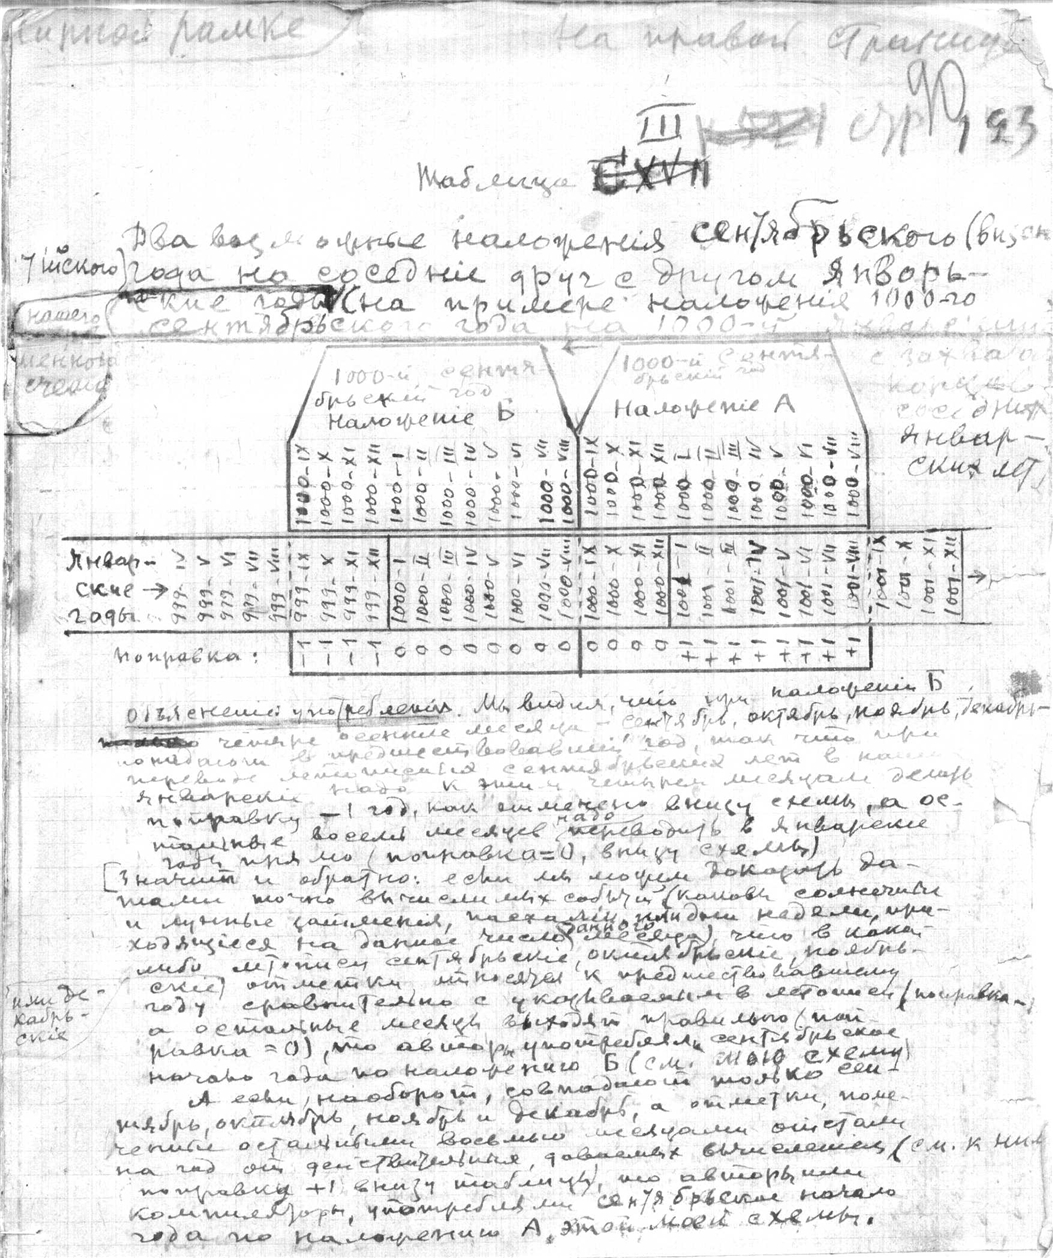 рамке)
на правой странице
90
III
стр 193
Таблица CXVII
Два возможные наложенія сентябрьского (визан-
тійского) года на соседніе друг с другом январь-
ские годы (на примере наложенія 1000-го
сентябрьского года на 1000-й
нашего
счета
с захватом
концов
соседних
январ-
ских лет)
1000-й сентя-
брьский год
Наложеніе Б
1000-й сентя-
брьский год
Наложеніе А
1000-IX 1000-X 1000-XI 1000-XII 1000-I 1000-II 1000-III 1000-IV 1000-V 1000-VI 1000-VII 1000-VIII 1000-IX 1000-X 1000-XI 1000-XII 1000-I 1000-II 1000-III 1000-IV 1000-V 1000-VI 1000-VII 1000-VIII
Январ-
ские →
годы
999-V 999-VI 999-VII 999-VIII 999-IX 999-X 999-XI 999-XII 1000-I 1000-II 1000-III 1000-IV 1000-V 1000-VI 1000-VII 1000-VIII 1000-IX 1000-X 1000-XI 1000-XII 1001-I 1001-II 1001-III 1001-IV 1001-V 1001-VI 1001-VII 1001-VIII 1001-IX 1001-X 1001-XI 1001-XII →
Поправка: -1 -1 -1 -1 0 0 0 0 0 0 0 0 0 0 0 0 +1 +1 +1 +1 +1 +1 +1 +1
Объясненіе употребленія. Мы видим, что при наложеніи Б
четыре осенние месяца — сентябрь, октябрь, ноябрь, декабрь
в предшествовавший год, так что при
переводе сентябрьских лет в наши
январскіе надо к этим четырем месяцам делать
поправку -1 год, как отмечено внизу схемы, а ос-
тальные восемь месяцев надо переводить в январскіе
годы прямо (поправка=0, внизу схемы)
[Значит и обратно: если мы можем доказать да-
тами точно вычислимых событій (каковы солнечныя
и лунныя затмения, пасхаліи, дни недели, при-
ходящіеся на данное число данного месяца) что в какой
либо летописи сентябрьскіе, октябрьскіе, ноябрь-
скіе или де-
кабрь-
скіе отметки относятся к предшествовавшему
году сравнительно с указываемым в летописи (поправка -1)
а остальные месяцы выходят правильно (поп-
равка = 0), то автор употреблял сентябрьское
начало года по наложению Б (см. мою схему)
А если, наоборот, совпадают только сен-
тябрь, октябрь, ноябрь и декабрь, а отметки, поме-
ченные остальными восемью месяцами отстали
на год от действительных, даваемых вычислением (см. к ним
поправку +1 внизу таблицы), то авторы или
компиляторы, употребляли сентябрьское начало
года по наложению А этой моей схемы.